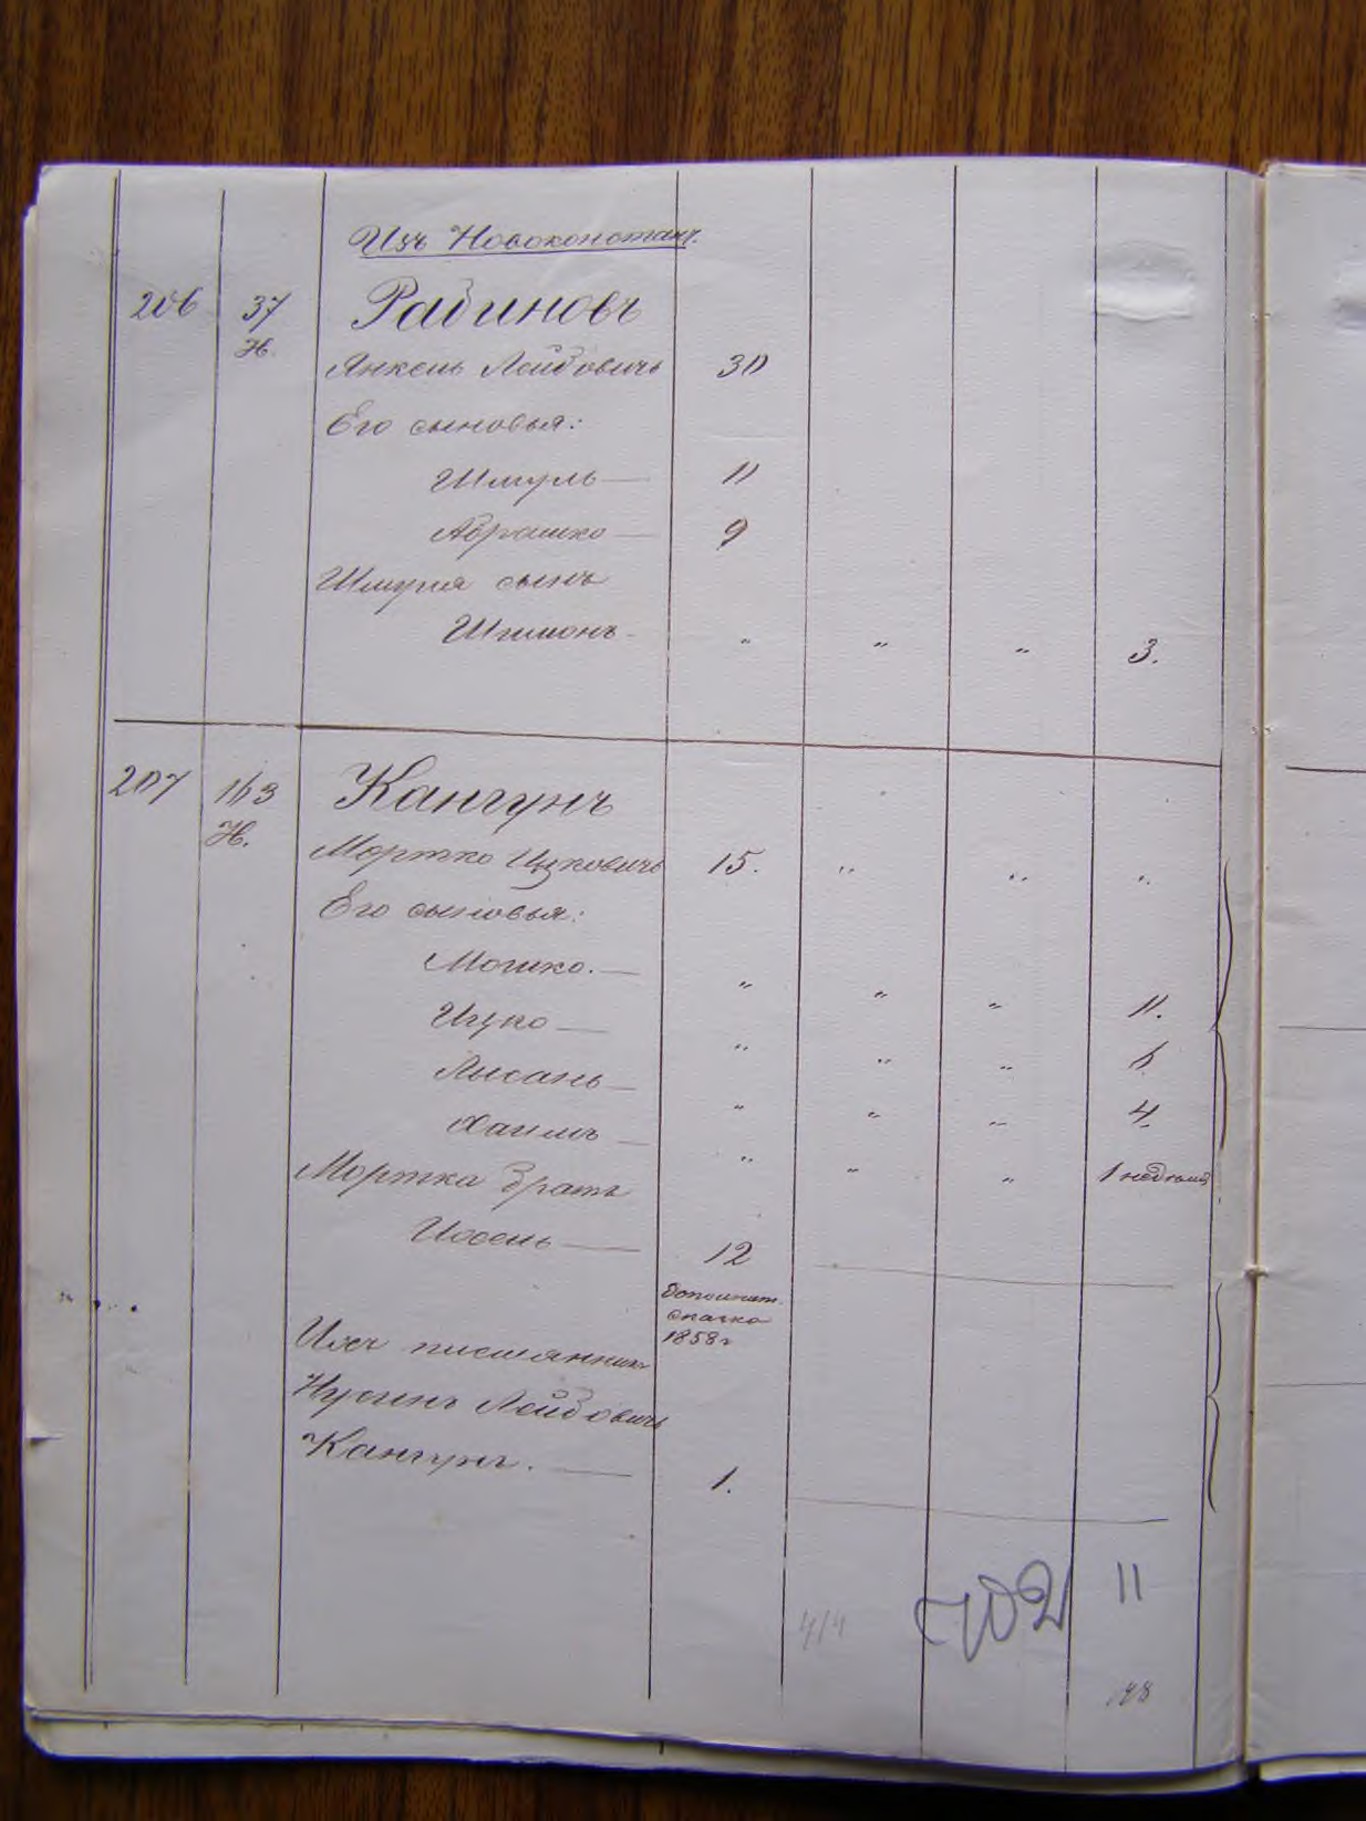 Изъ Новоконстант.
206 37 Рабиновъ
Н.
Янкель Лейбовичъ 30
Его сыновья:
Шмуль — 11
Аврошко — 9
Шмуля сынъ
Шимонъ - " " " 3.
207 163 Кангунъ
Н.
Мортко Ицковичъ 15. " " "
Его сыновья:
Мошко. — " " " 11.
Ицко — " " "
Лысань — " " " 4.
Хаимъ — " " " 1 недели
Мортка братъ
Иосель — 12
дополнит.
сказка
1858 г
Изъ письмянник
Нусинъ Лейбовичъ
Кангунъ. — 1.
11
4/4